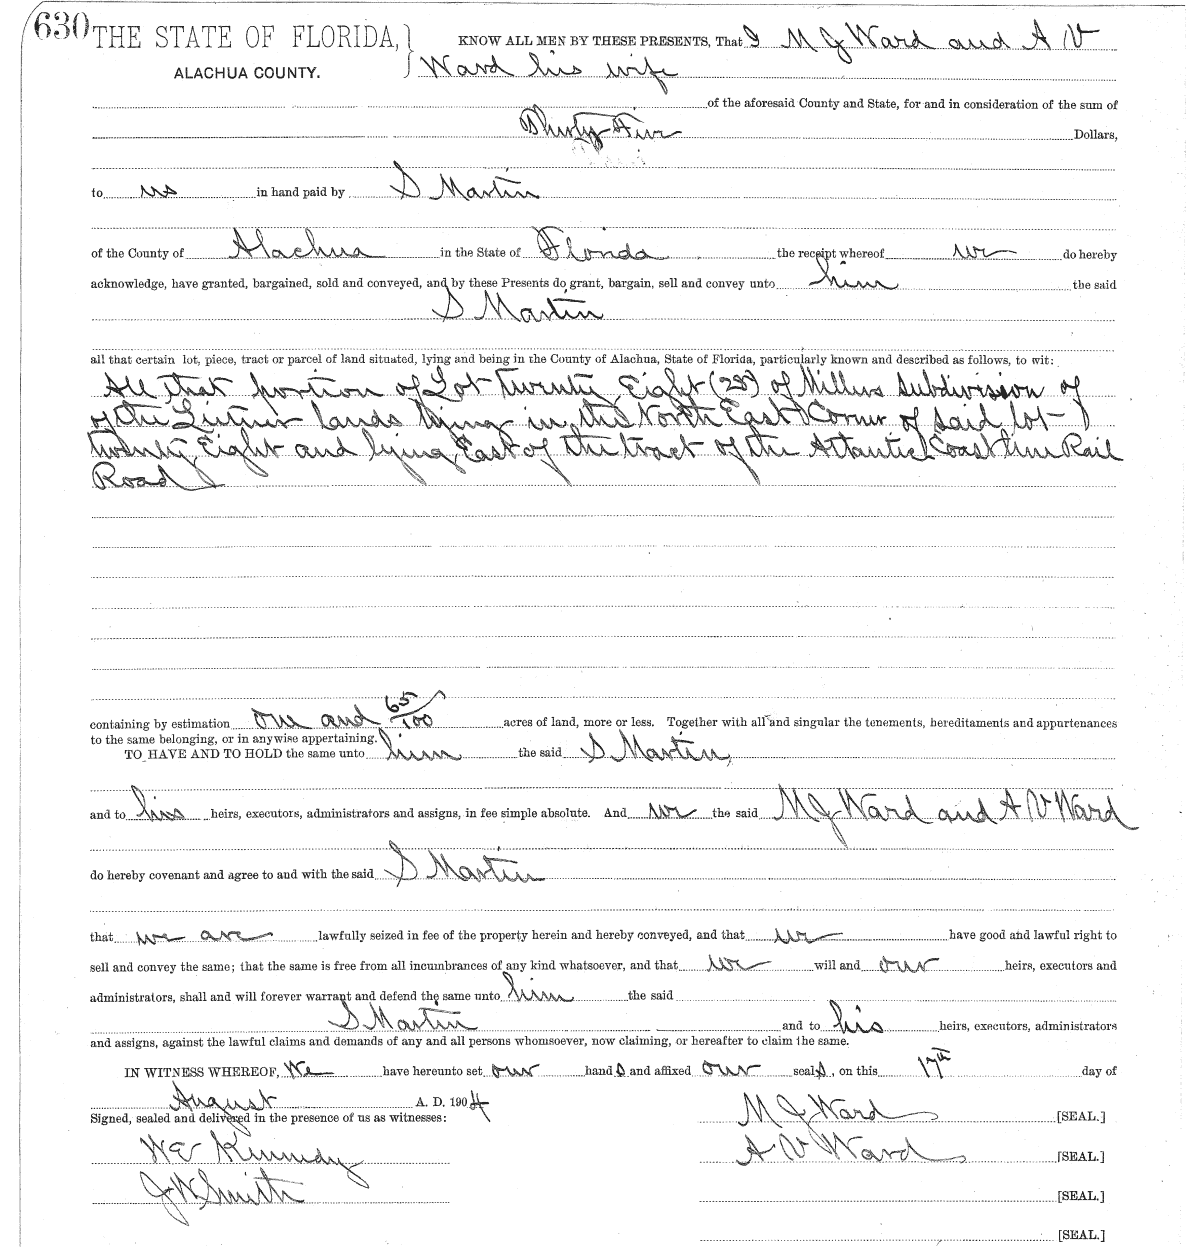 630 THE STATE OF FLORIDA, KNOW ALL MEN BY THESE PRESENTS, That I M J Ward and A V
ALACHUA COUNTY. Ward his wife
of the aforesaid County and State, for and in consideration of the sum of
Thirty Five Dollars,
to us in hand paid by S Martin
of the County of Alachua in the State of Florida the receipt whereof we do hereby
acknowledge, have granted, bargained, sold and conveyed, and by these Presents do grant, bargain, sell and convey unto him the said
S Martin
all that certain lot, piece, tract or parcel of land situated, lying and being in the County of Alachua, State of Florida, particularly known and described as follows, to wit:
All that portion of Lot Twenty Eight (28) of Millers Subdivision of
of the lands lying in the North East Corner of said lot
twenty Eight and lying East of the tract of the Atlantic Coast line Rail
Road
containing by estimation one and 65/100 acres of land, more or less. Together with all and singular the tenements, hereditaments and appurtenances
to the same belonging, or in anywise appertaining.
TO HAVE AND TO HOLD the same unto him the said S Martin,
and to his heirs, executors, administrators and assigns, in fee simple absolute. And we the said M J Ward and A V Ward
do hereby covenant and agree to and with the said S Martin
that we are lawfully seized in fee of the property herein and hereby conveyed, and that we have good and lawful right to
sell and convey the same; that the same is free from all incumbrances of any kind whatsoever, and that we will and our heirs, executors and
administrators, shall and will forever warrant and defend the same unto him the said
S Martin and to his heirs, executors, administrators
and assigns, against the lawful claims and demands of any and all persons whomsoever, now claiming, or hereafter to claim the same.
IN WITNESS WHEREOF, We have hereunto set our hand s and affixed our seal s, on this 17th day of
August A. D. 1904
Signed, sealed and delivered in the presence of us as witnesses: M J Ward [SEAL.]
W E Kennedy A V Ward [SEAL.]
J W Smith [SEAL.]
[SEAL.]